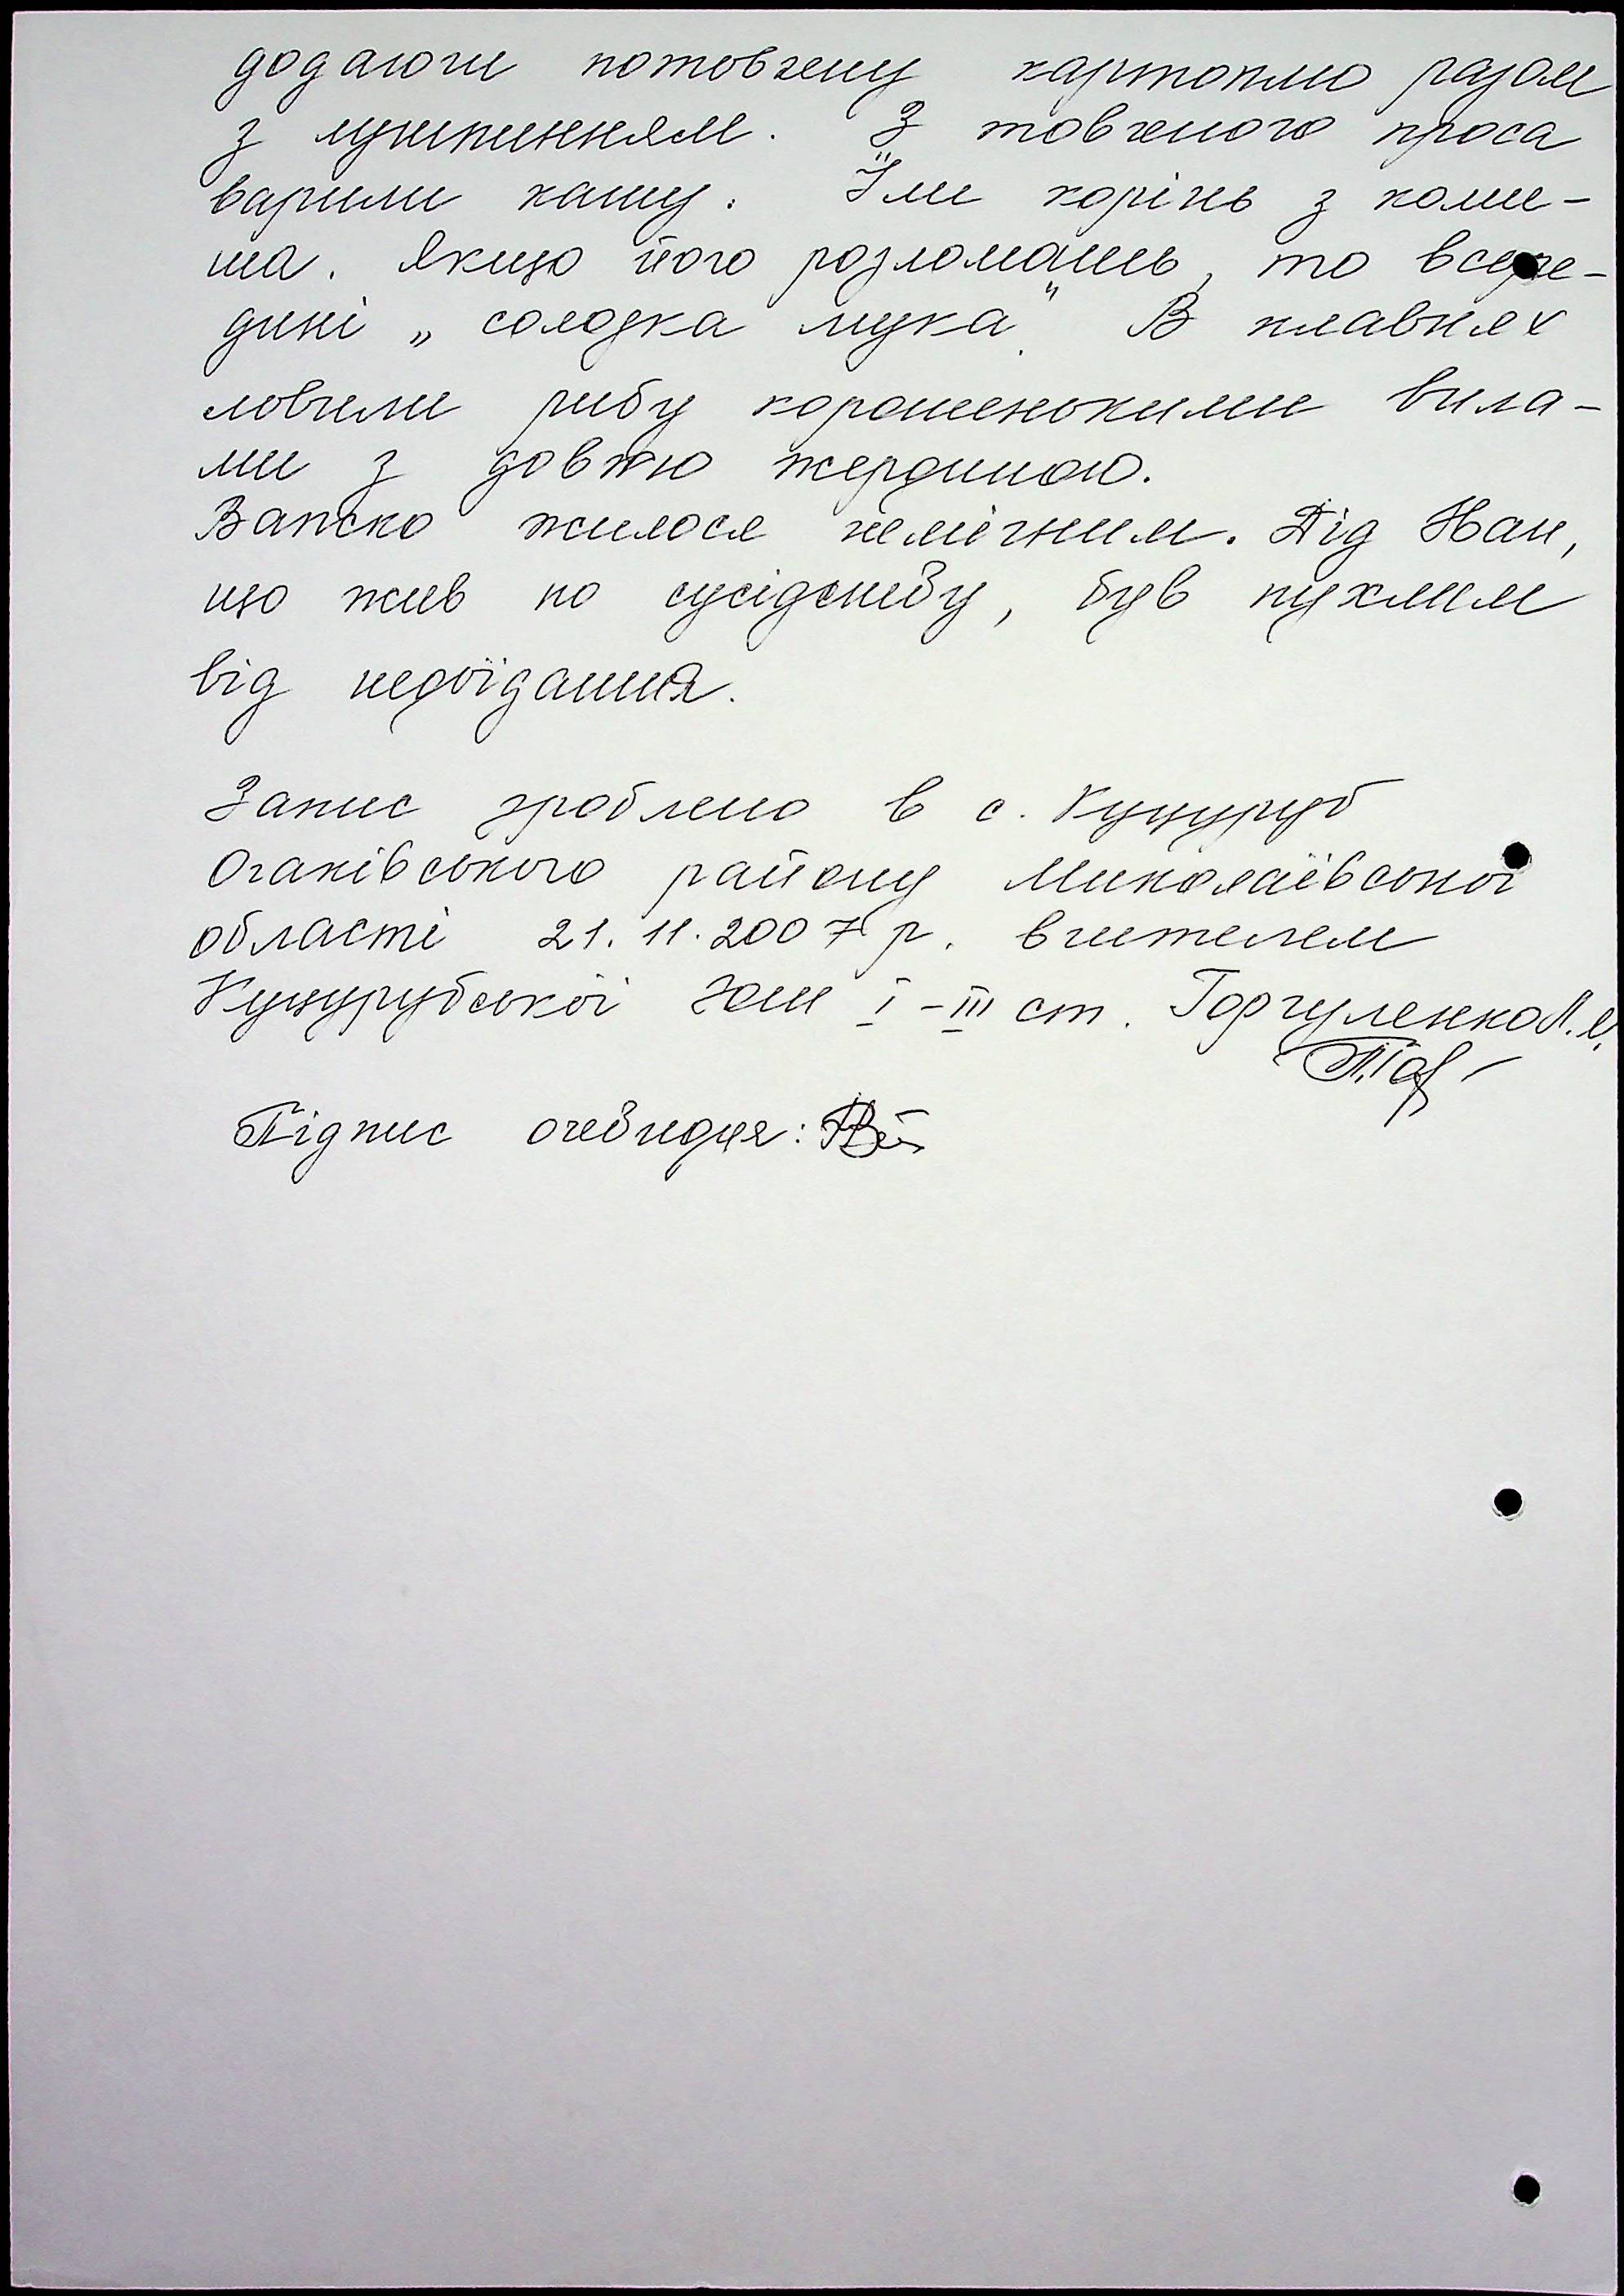 додаючи потовчену картоплю разом
з лушпинням. З товченого проса
варили кашу. Їли корінь з коми-
ша. Якщо його розломаєш, то всере-
дині „солодка мука". В плавнях
ловили рибу коротенькими вила-
ми з довгою жердиною.
Важко жилося немічним. Дід Нан,
що жив по сусідству, був пухлим
від недоїдання.
Запис зроблено в с. Куцуруб
Очаківського району Миколаївської
області 21.11.2007 р. вчителем
Куцурубської ЗОШ І-ІІІ ст. Горгуленко Л.І.
Підпис очевидця: